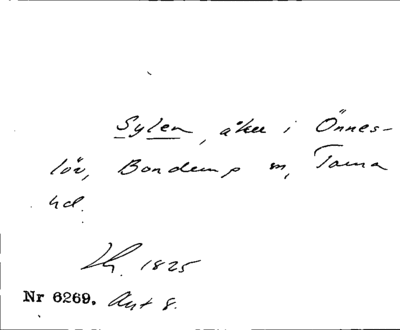 Sylen, åker i Önnes-
löv, Bonderup sn, Torna
hd.
1825
Nr 6269. Avt 8.